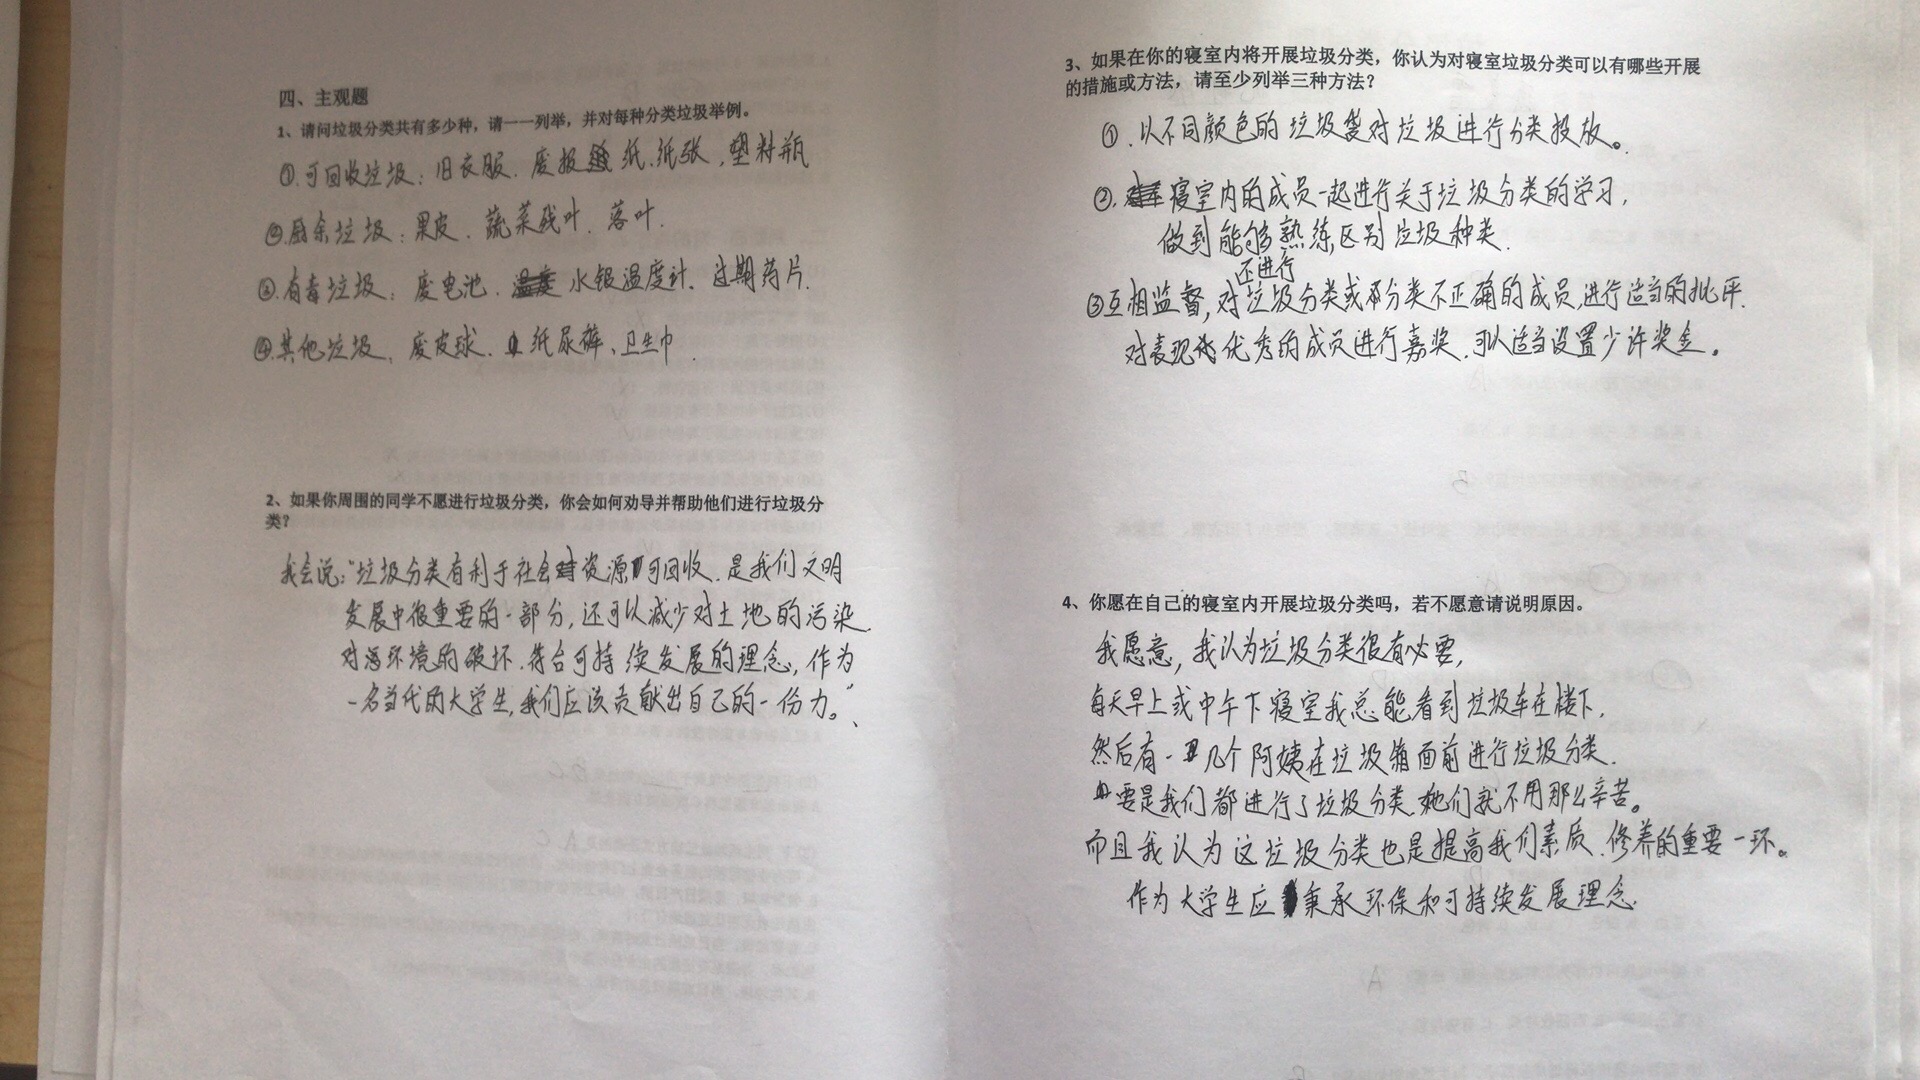 四、主观题
1、请问垃圾分类共有多少种，请一一列举，并对每种分类垃圾举例。
①.可回收垃圾：旧衣服．废报纸．纸张，塑料瓶
②.厨余垃圾：果皮．蔬菜残叶．落叶．
③.有毒垃圾：废电池．水银温度计．过期药片．
④.其他垃圾、废皮球．纸尿裤、卫生巾．
2、如果你周围的同学不愿进行垃圾分类，你会如何劝导并帮助他们进行垃圾分
类？
我会说：“垃圾分类有利于社会资源可回收．是我们文明
发展中很重要的一部分，还可以减少对土地的污染
对环境的破坏．符合可持续发展的理念，作为
一名当代的大学生，我们应该贡献出自己的一份力。”
3、如果在你的寝室内将开展垃圾分类，你认为对寝室垃圾分类可以有哪些开展
的措施或方法，请至少列举三种方法？
①．以不同颜色的垃圾袋对垃圾进行分类投放。
②．寝室内的成员一起进行关于垃圾分类的学习，
做到能够熟练区别垃圾种类．
③互相监督，对垃圾分类或分类不正确的成员，进行适当的批评．
对表现优秀的成员进行嘉奖．可以适当设置少许奖金。
4、你愿在自己的寝室内开展垃圾分类吗，若不愿意请说明原因。
我愿意，我认为垃圾分类很有必要，
每天早上或中午下寝室我总能看到垃圾车在楼下，
然后有一几个阿姨在垃圾箱面前进行垃圾分类．
要是我们都进行了垃圾分类．她们就不用那么辛苦。
而且我认为这垃圾分类也是提高我们素质．修养的重要一环。
作为大学生应秉承环保和可持续发展理念．